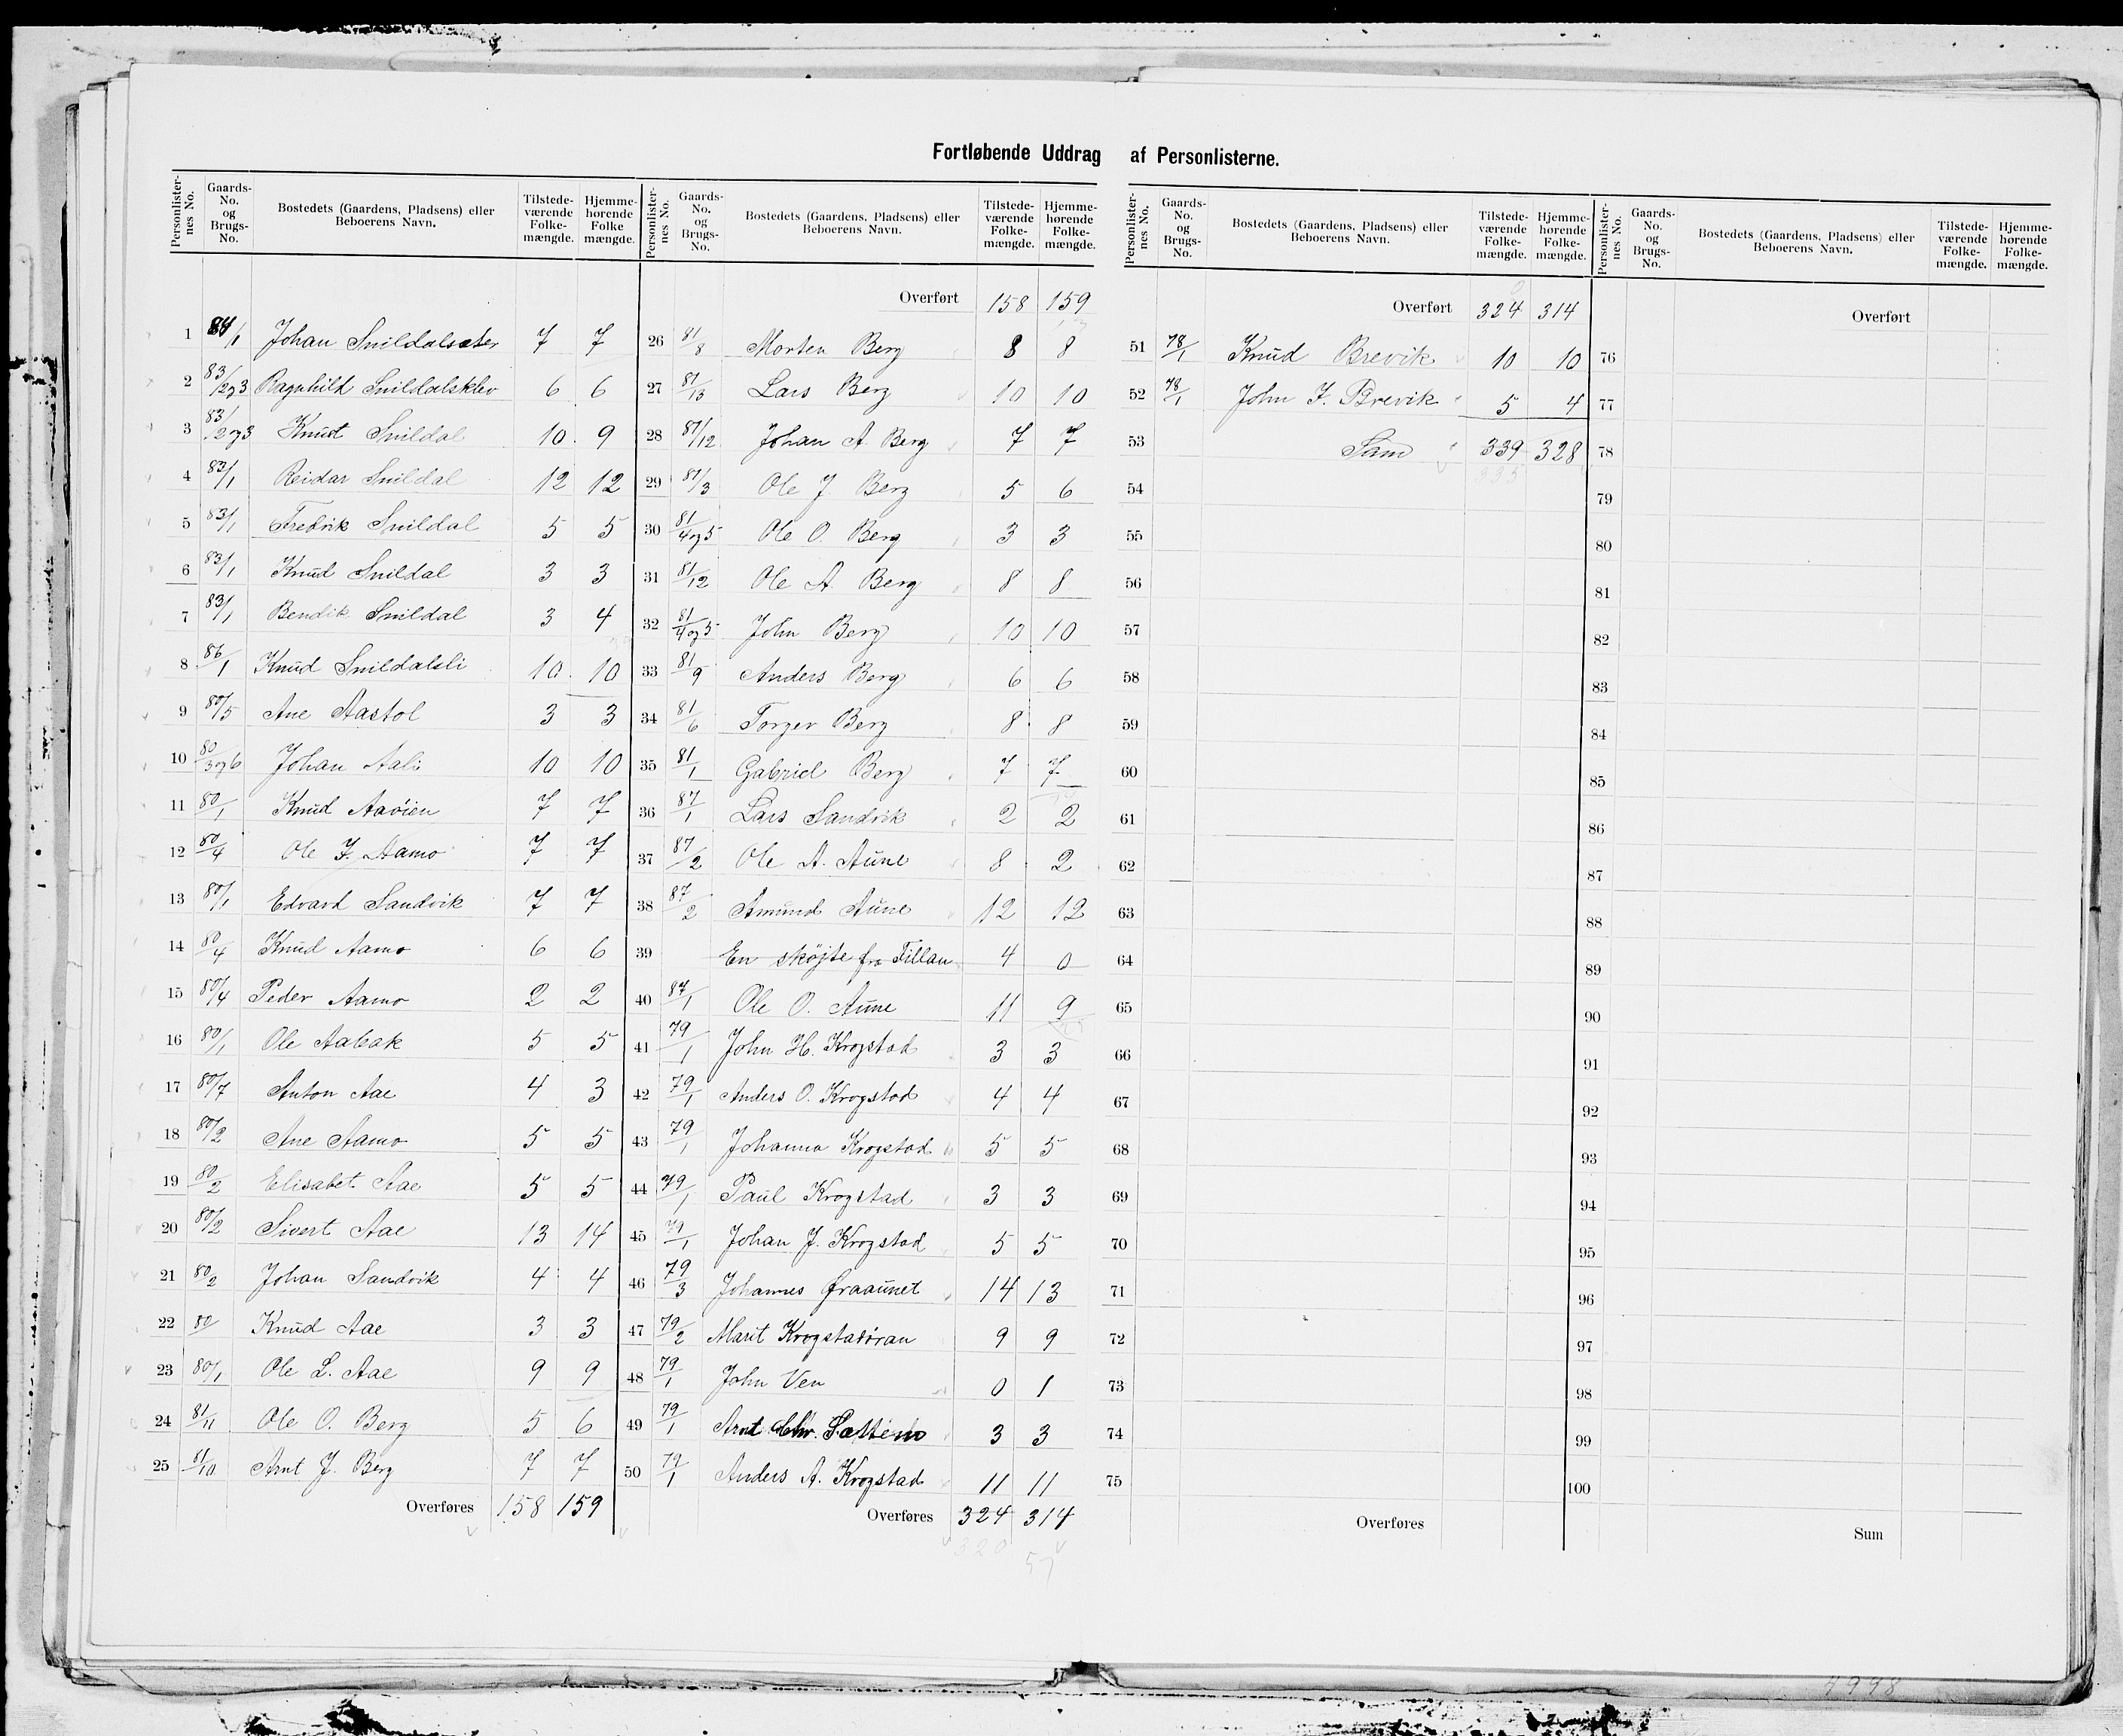 Fortløbende Uddrag af Personlisterne.
Personlister-nes No. Gaards-No. og Brugs-No. Bostedets (Gaardens, Pladsens) eller Beboerens Navn. Tilstede-værende Folke-mængde. Hjemme-hørende Folke mængde.
1 84/1 Johan Snildalsæter 7 7
2 83/2og3 Ragnhild Snildalsklev 6 6
3 83/2og3 Knut Snildal 10 9
4 83/1 Reidar Snildal 12 12
5 83/1 Fredrik Snildal 5 5
6 83/1 Knud Snildal 3 3
7 83/1 Bendik Snildal 3 4
8 86/1 Knud Snildalsli 10 10
9 80/5 Ane Aastøl 3 3
10 80/3og6 Johan Aali 10 10
11 80/1 Knud Aaøien 7 7
12 80/4 Ole J. Aamo 7 7
13 80/1 Edvard Sandvik 7 7
14 80/4 Knud Aamo 6 6
15 80/4 Peder Aamo 2 2
16 80/1 Ole Aabak 5 5
17 80/7 Anton Aae 4 3
18 80/2 Ane Aamo 5 5
19 80/2 Elisabet Aae 5 5
20 80/2 Sivert Aae 13 14
21 80/2 Johan Sandvik 4 4
22 80/ Knud Aae 3 3
23 80/1 Ole L. Aae 9 9
24 81/11 Ole O. Berg 5 6
25 81/10 Arnt J. Berg 7 7
Overføres 158 159
Personlister-nes No. Gaards-No. og Brugs-No. Bostedets (Gaardens, Pladsens) eller Beboerens Navn. Tilstede-værende Folke-mængde. Hjemme-hørende Folke-mængde.
Overført 158 159
26 81/8 Morten Berg 8 8
27 81/13 Lars Berg 10 10
28 81/12 Johan A. Berg 7 7
29 81/3 Ole J. Berg 5 6
30 81/4og5 Ole O. Berg 3 3
31 81/12 Ole A. Berg 8 8
32 81/4og5 John Berg 10 10
33 81/9 Anders Berg 6 6
34 81/6 Torger Berg 8 8
35 81/1 Gabriel Berg 7 7
36 87/1 Lars Sandvik 2 2
37 87/2 Ole A. Aune 8 2
38 87/2 Amund Aune 12 12
39 En skøjte fra Fillan 4 0
40 87/1 Ole O. Aune 11 9
41 79/1 John H. Krogstad 3 3
42 79/1 Anders O. Krogstad 4 4
43 79/1 Johanna Krogstad 5 5
44 79/1 Paul Krogstad 3 3
45 79/1 Johan J. Krogstad 5 5
46 79/3 Johannes Øraaunet 14 13
47 79/2 Marit Krogstadøran 9 9
48 79/1 John Ven 0 1
49 79/1 Arnt Chr. Sættem 3 3
50 79/1 Anders A. Krogstad 11 11
Overføres 324 314
320
57
Personlister-nes No. Gaards-No. og Brugs-No. Bostedets (Gaardens, Pladsens) eller Beboerens Navn. Tilstede-værende Folke-mængde. Hjemme-hørende Folke-mængde.
Overført 324 314
51 78/1 Knud Brevik 10 10
52 78/1 John J. Brevik 5 4
53 Sum 339 328
335
54
55
56
57
58
59
60
61
62
63
64
65
66
67
68
69
70
71
72
73
74
75
Overføres
Personlister-nes No. Gaards-No. og Brugs-No. Bostedets (Gaardens, Pladsens) eller Beboerens Navn. Tilstede-værende Folke-mængde. Hjemme-hørende Folke-mængde.
Overført
76
77
78
79
80
81
82
83
84
85
86
87
88
89
90
91
92
93
94
95
96
97
98
99
100
Sum
4998